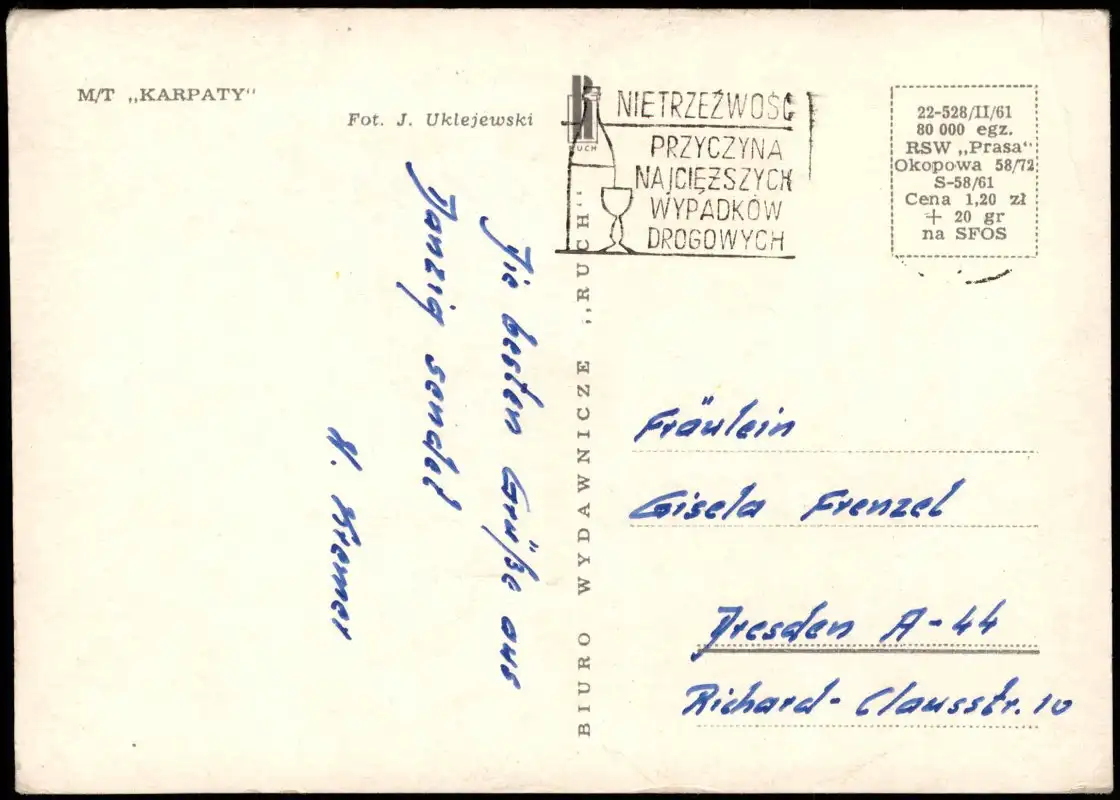 M/T „KARPATY"
Fot. J. Uklejewski
RUCH
NIETRZEŹWOŚĆ
PRZYCZYNA
NAJCIĘŻSZYCH
WYPADKÓW
DROGOWYCH
22-528/II/61
80 000 egz.
RSW „Prasa"
Okopowa 58/72
S-58/61
Cena 1,20 zł
+ 20 gr
na SFOS
Die besten Grüße aus
Danzig sendet
H. Kremer
BIURO WYDAWNICZE „RUCH"
Fräulein
Gisela Frenzel
Dresden A-44
Richard-Clausstr. 10